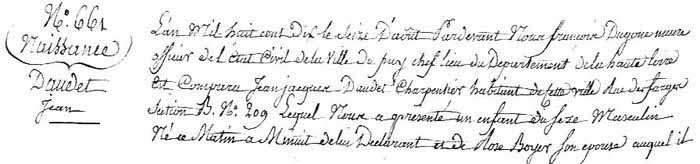 N.° 661
Naissance
Daudet
Jean
L'an Mil huit cent dix le seize D'août Pardevant Nous françois Dugone maire
officier de L'état Civil de la Ville du puy chef lieu du Departement de la haute Loire
Est Comparu Jean jacques Daudet Charpentier habitant de cette ville Rue des farges
Section B. N.° 209 Lequel Nous a presenté un enfant du sexe Masculin
Né ce Matin a Minuit de lui Declarant et de Rose Boyer son epouse auquel il